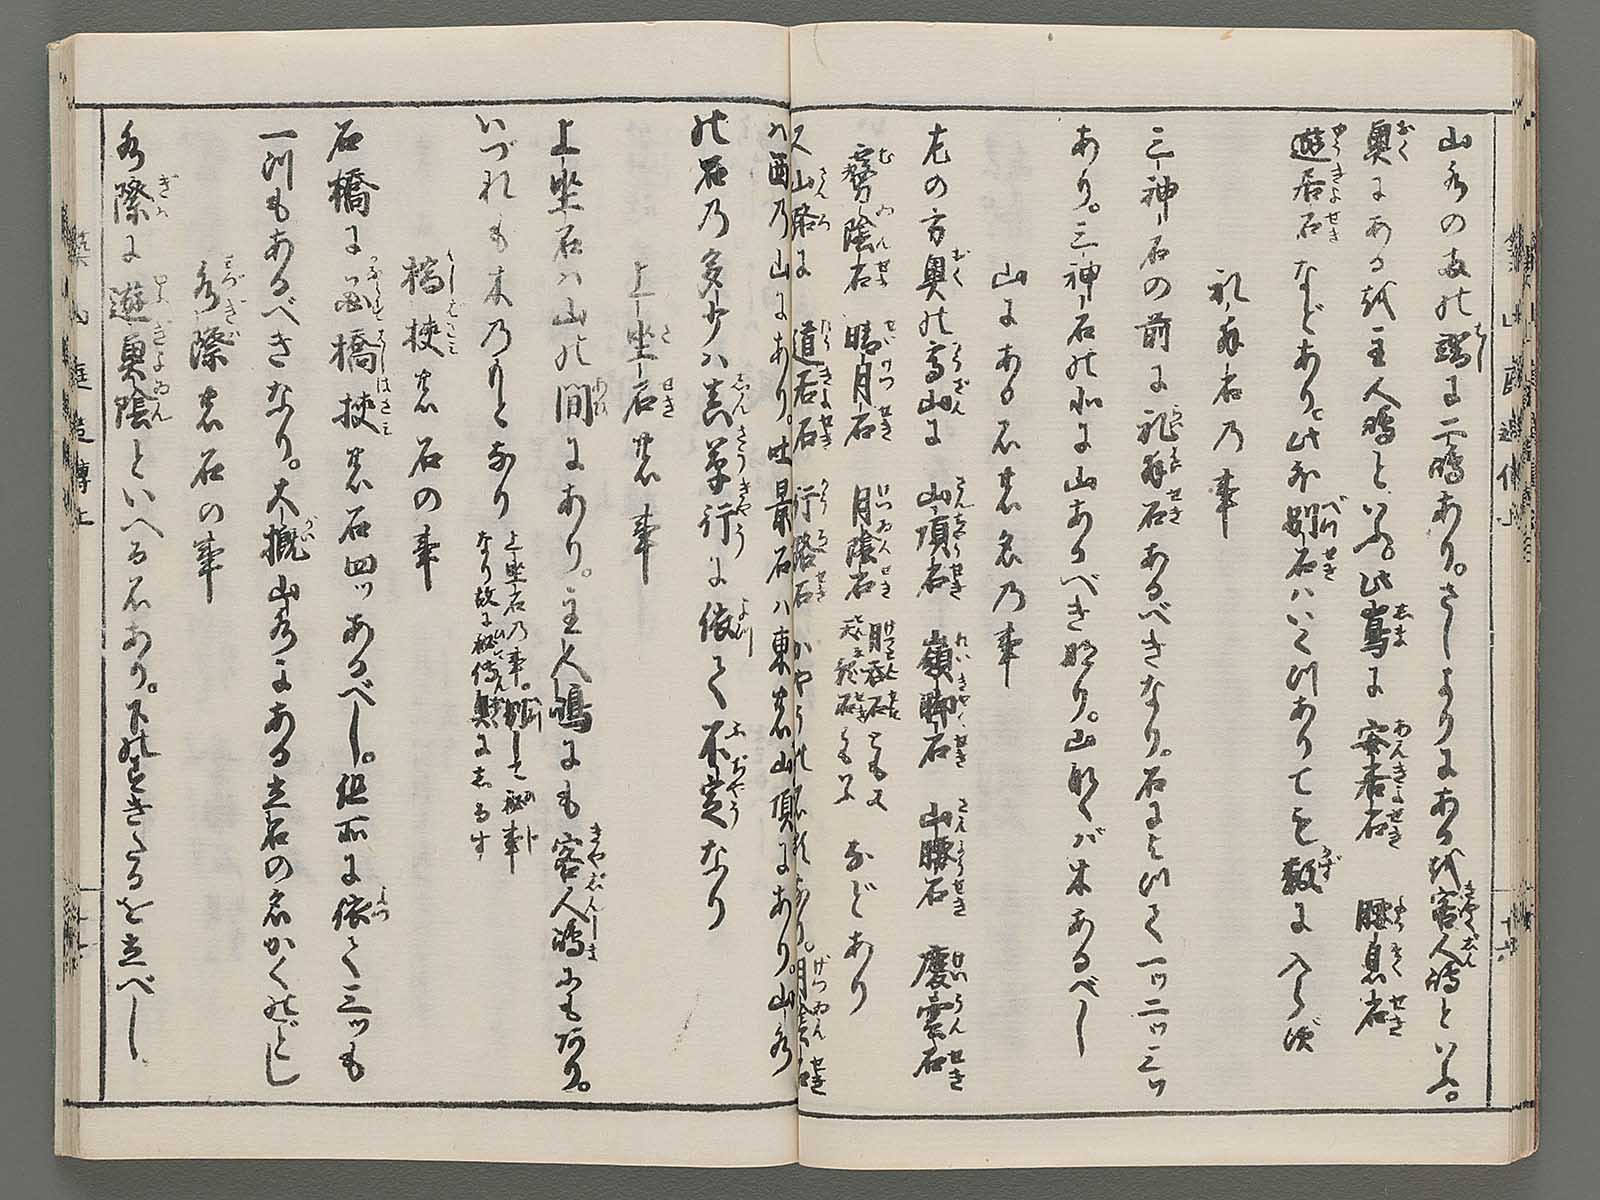 山水の女の端に二嶋あり。さしよりにある を客人嶋といふ。
奥にある を主人嶋といふ。此嶌に 安居石 腰息石
遊居石 などあり。此外別石ハいくつありても 数に入らず
礼拜石乃事
三神石の前に礼拜石あるべきなり。石によつて一ッ二ッ三ッ
あり。三神石の北に山あるべきなり。山なくバ木あるべし
山にある石其名乃事
左の方奥の高山に 山頂石 嶺脚石 山腰石 慶雲石
霧陰石 晴月石 月陰石 などあり
又山路に 道居石 行路石 かやうの名あり。月陰石
ハ西乃山にあり。 最石ハ東其山頂にあり。山水
の石乃多少ハ真草行に依て不定なり
上坐石其事
上坐石ハ山の間にあり。主人嶋にも客人嶋にもあり。
いづれも木乃もとなり 上坐石乃事。別して秘事
なり故に秘傳奥にしるす
橋挾其石の事
石橋に 橋挾其石四ッあるべし。但所に依て三ッも
一ツもあるべきなり。大概山水にある立石の名かくのごとし
水際其石の事
水際に遊魚陰といへる石あり。下のすきたるを立べし